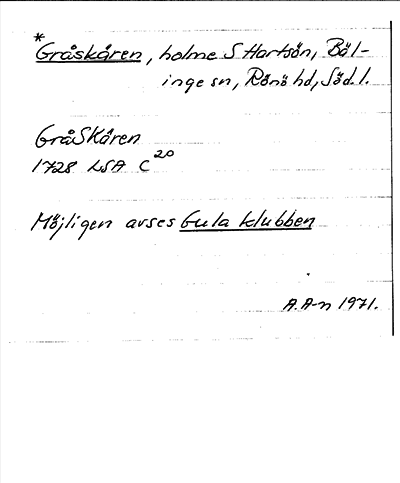 *
Gråskåren, holme S Hartsön, Bäl-
inge sn, Rönö hd, Söd. l.
GråSkåren
1728 LSA C 20
Möjligen avses Gula klubben
A. A-n 1971.